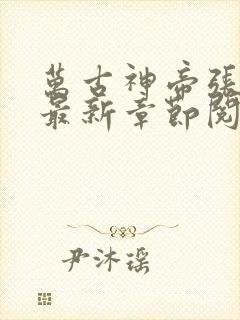 萬古神帝張
最新章節閱
尹沐瑶